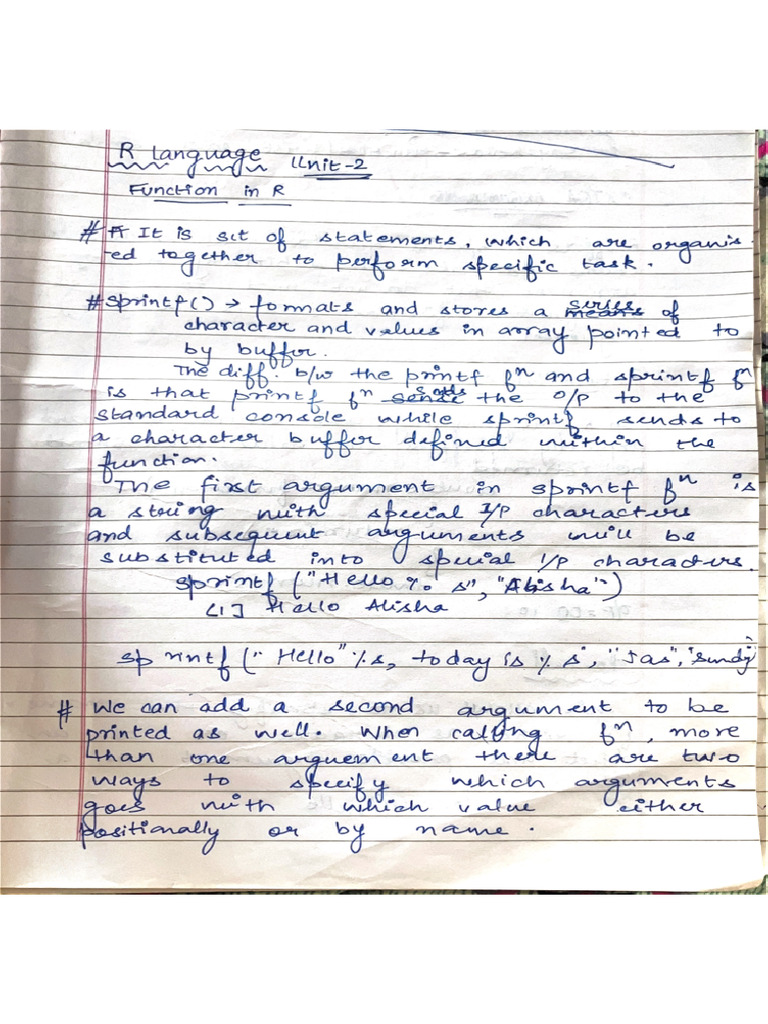 R language Unit-2
Function in R
# It is set of statements, which are organis
-ed together to perform specific task.
# sprintf() → formats and stores a series of
character and values in array pointed to
by buffer.
The diff. b/w the printf fⁿ and sprintf fⁿ
is that printf fⁿ sends the o/p to the
standard console while sprintf sends to
a character buffer defined within the
function.
The first argument in sprintf fⁿ is
a string with special I/P characters
and subsequent arguments will be
substituted into special I/P characters.
sprintf ("Hello %s", "Alisha")
[1] Hello Alisha
sprintf ("Hello" %s, today is %s", "Jas", "Sunday")
# We can add a second argument to be
printed as well. When calling fⁿ, more
than one arguement there are two
ways to specify which arguments
goes with which value either
positionally or by name.